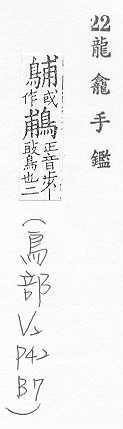 22 龍龕手鑑
或作鵏正音步丨鳥也二
(鳥部 V2 P42 B7)